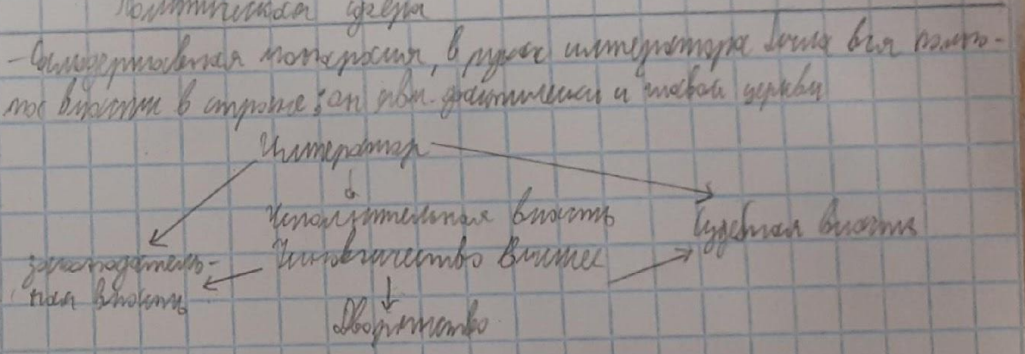 Политическая сфера
- Самодержавная монархия, в руках императора была вся полно-
та власти в стране; он явл. фактически и главой церкви
Император
Исполнительная власть
Судебная власть
Чиновничество высшее
законодатель-
ная власть
Дворянство